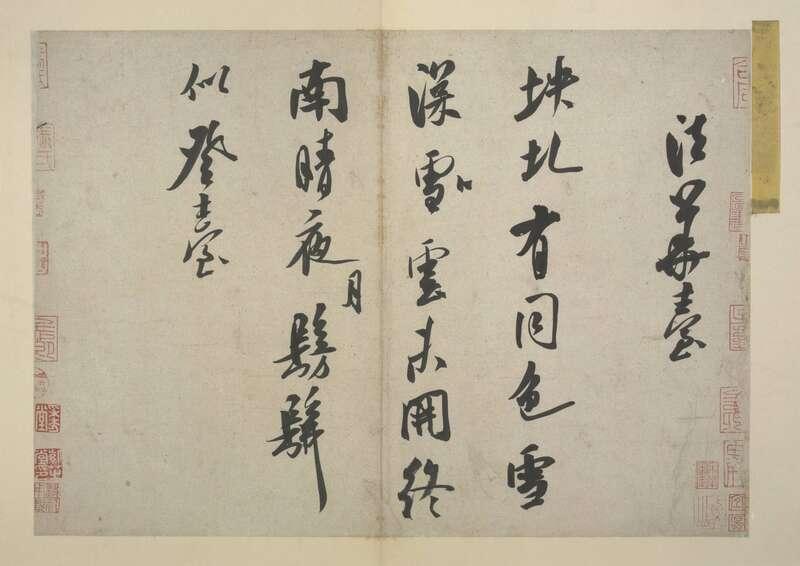 法華臺
坱圠有同色雪
深雪雲未開終
南晴夜月髣髴
似登臺